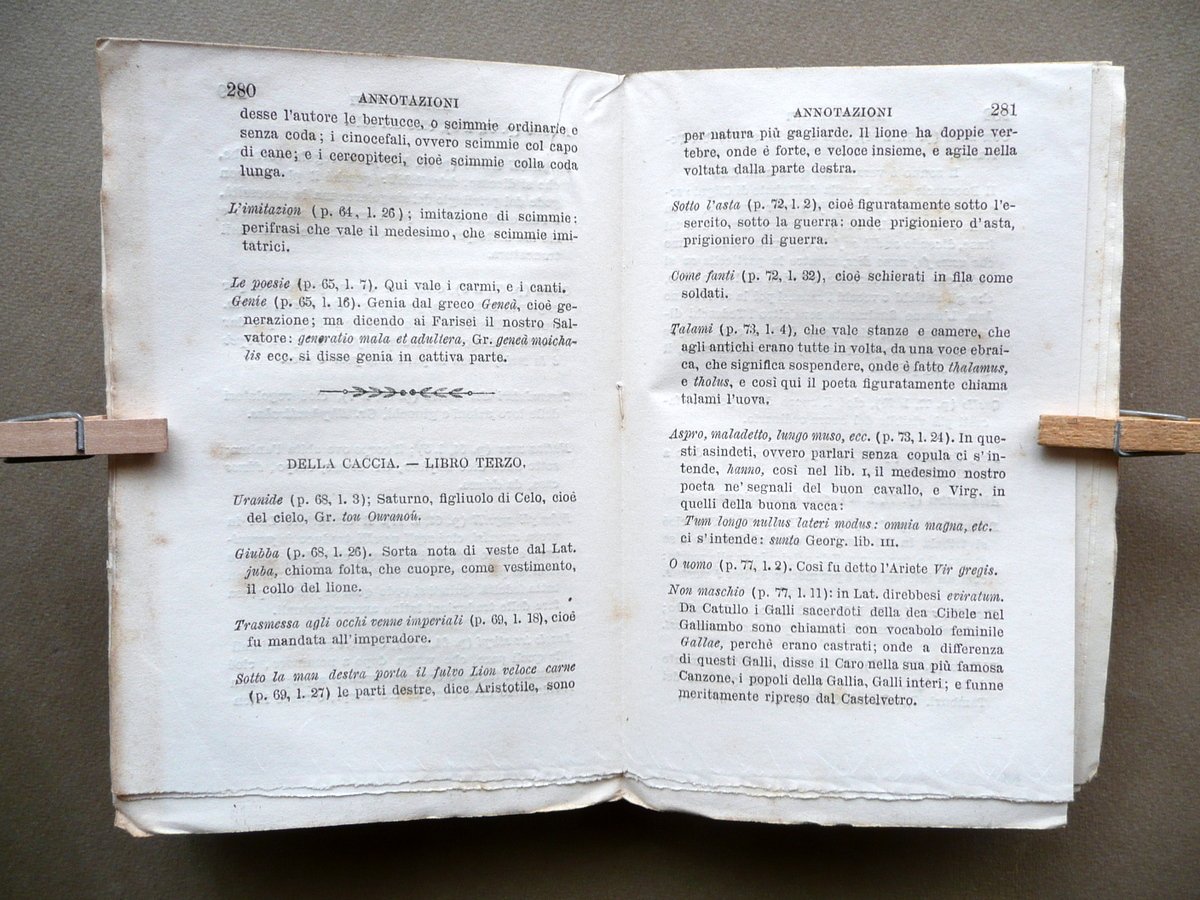 280
ANNOTAZIONI
desse l'autore le bertucce, o scimmie ordinarie e
senza coda; i cinocefali, ovvero scimmie col capo
di cane; e i cercopiteci, cioè scimmie colla coda
lunga.
L'imitazion (p. 64, l. 26); imitazione di scimmie:
perifrasi che vale il medesimo, che scimmie imi-
tatrici.
Le poesie (p. 65, l. 7). Qui vale i carmi, e i canti.
Genie (p. 65, l. 16). Genia dal greco Geneà, cioè ge-
nerazione; ma dicendo ai Farisei il nostro Sal-
vatore: generatio mala et adultera, Gr. geneà moicha-
lis ecc. si disse genia in cattiva parte.
DELLA CACCIA. — LIBRO TERZO.
Uranide (p. 68, l. 3); Saturno, figliuolo di Celo, cioè
del cielo, Gr. tou Ouranoú.
Giubba (p. 68, l. 26). Sorta nota di veste dal Lat.
juba, chioma folta, che cuopre, come vestimento,
il collo del lione.
Trasmessa agli occhi venne imperiali (p. 69, l. 18), cioè
fu mandata all'imperadore.
Sotto la man destra porta il fulvo Lion veloce carne
(p. 69, l. 27) le parti destre, dice Aristotile, sono
ANNOTAZIONI
281
per natura più gagliarde. Il lione ha doppie ver-
tebre, onde è forte, e veloce insieme, e agile nella
voltata dalla parte destra.
Sotto l'asta (p. 72, l. 2), cioè figuratamente sotto l'e-
sercito, sotto la guerra: onde prigioniero d'asta,
prigioniero di guerra.
Come fanti (p. 72, l. 32), cioè schierati in fila come
soldati.
Talami (p. 73, l. 4), che vale stanze e camere, che
agli antichi erano tutte in volta, da una voce ebrai-
ca, che significa sospendere, onde è fatto thalamus,
e tholus, e così qui il poeta figuratamente chiama
talami l'uova.
Aspro, maladetto, lungo muso, ecc. (p. 73, l. 24). In que-
sti asindeti, ovvero parlari senza copula ci s'in-
tende, hanno, così nel lib. I, il medesimo nostro
poeta ne' segnali del buon cavallo, e Virg. in
quelli della buona vacca:
Tum longo nullus lateri modus: omnia magna, etc.
ci s'intende: sunto Georg. lib. III.
O uomo (p. 77, l. 2). Così fu detto l'Ariete Vir gregis.
Non maschio (p. 77, l. 11): in Lat. direbbesi eviratum.
Da Catullo i Galli sacerdoti della dea Cibele nel
Galliambo sono chiamati con vocabolo feminile
Gallae, perchè erano castrati; onde a differenza
di questi Galli, disse il Caro nella sua più famosa
Canzone, i popoli della Gallia, Galli interi; e funne
meritamente ripreso dal Castelvetro.